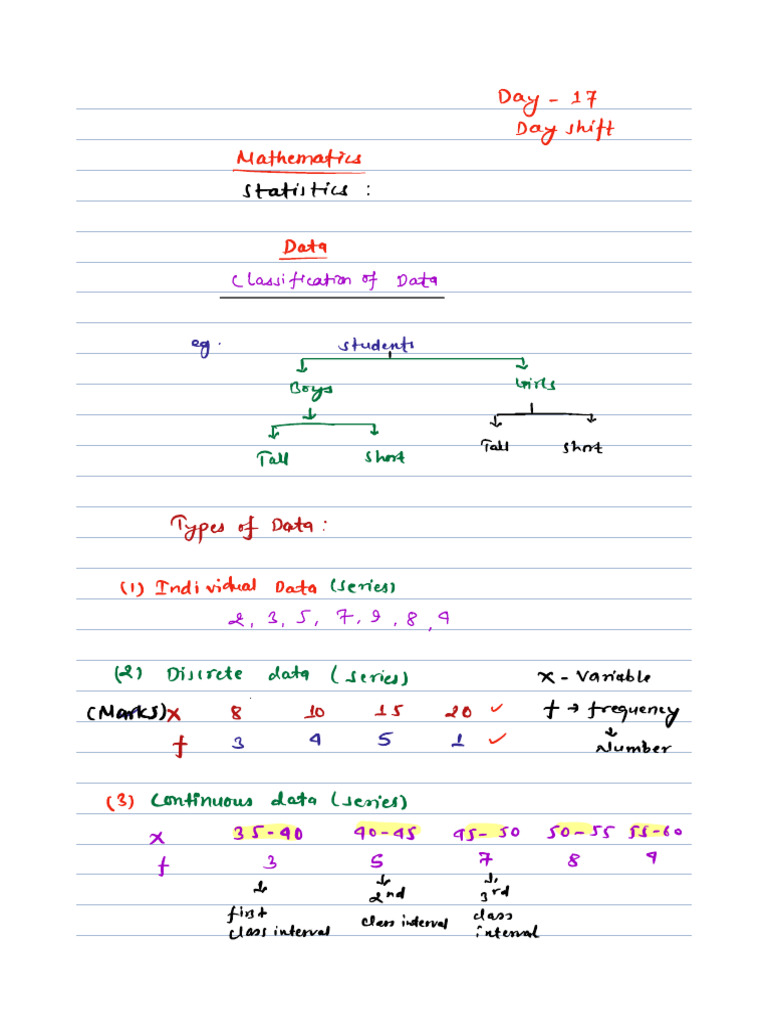 Day - 17
Day shift
Mathematics
Statistics :
Data
Classification of Data
eg. Students
Boys Girls
Tall Short Tall Short
Types of Data :
(1) Individual Data (series)
2, 3, 5, 7, 9, 8, 4
(2) Discrete data (series) x - Variable
(Marks) x 8 10 15 20 ✓ f → frequency
f 3 4 5 1 ✓ Number
(3) Continuous data (series)
x 35-40 40-45 45-50 50-55 55-60
f 3 5 7 8 4
first class interval
2nd class interval
3rd class interval